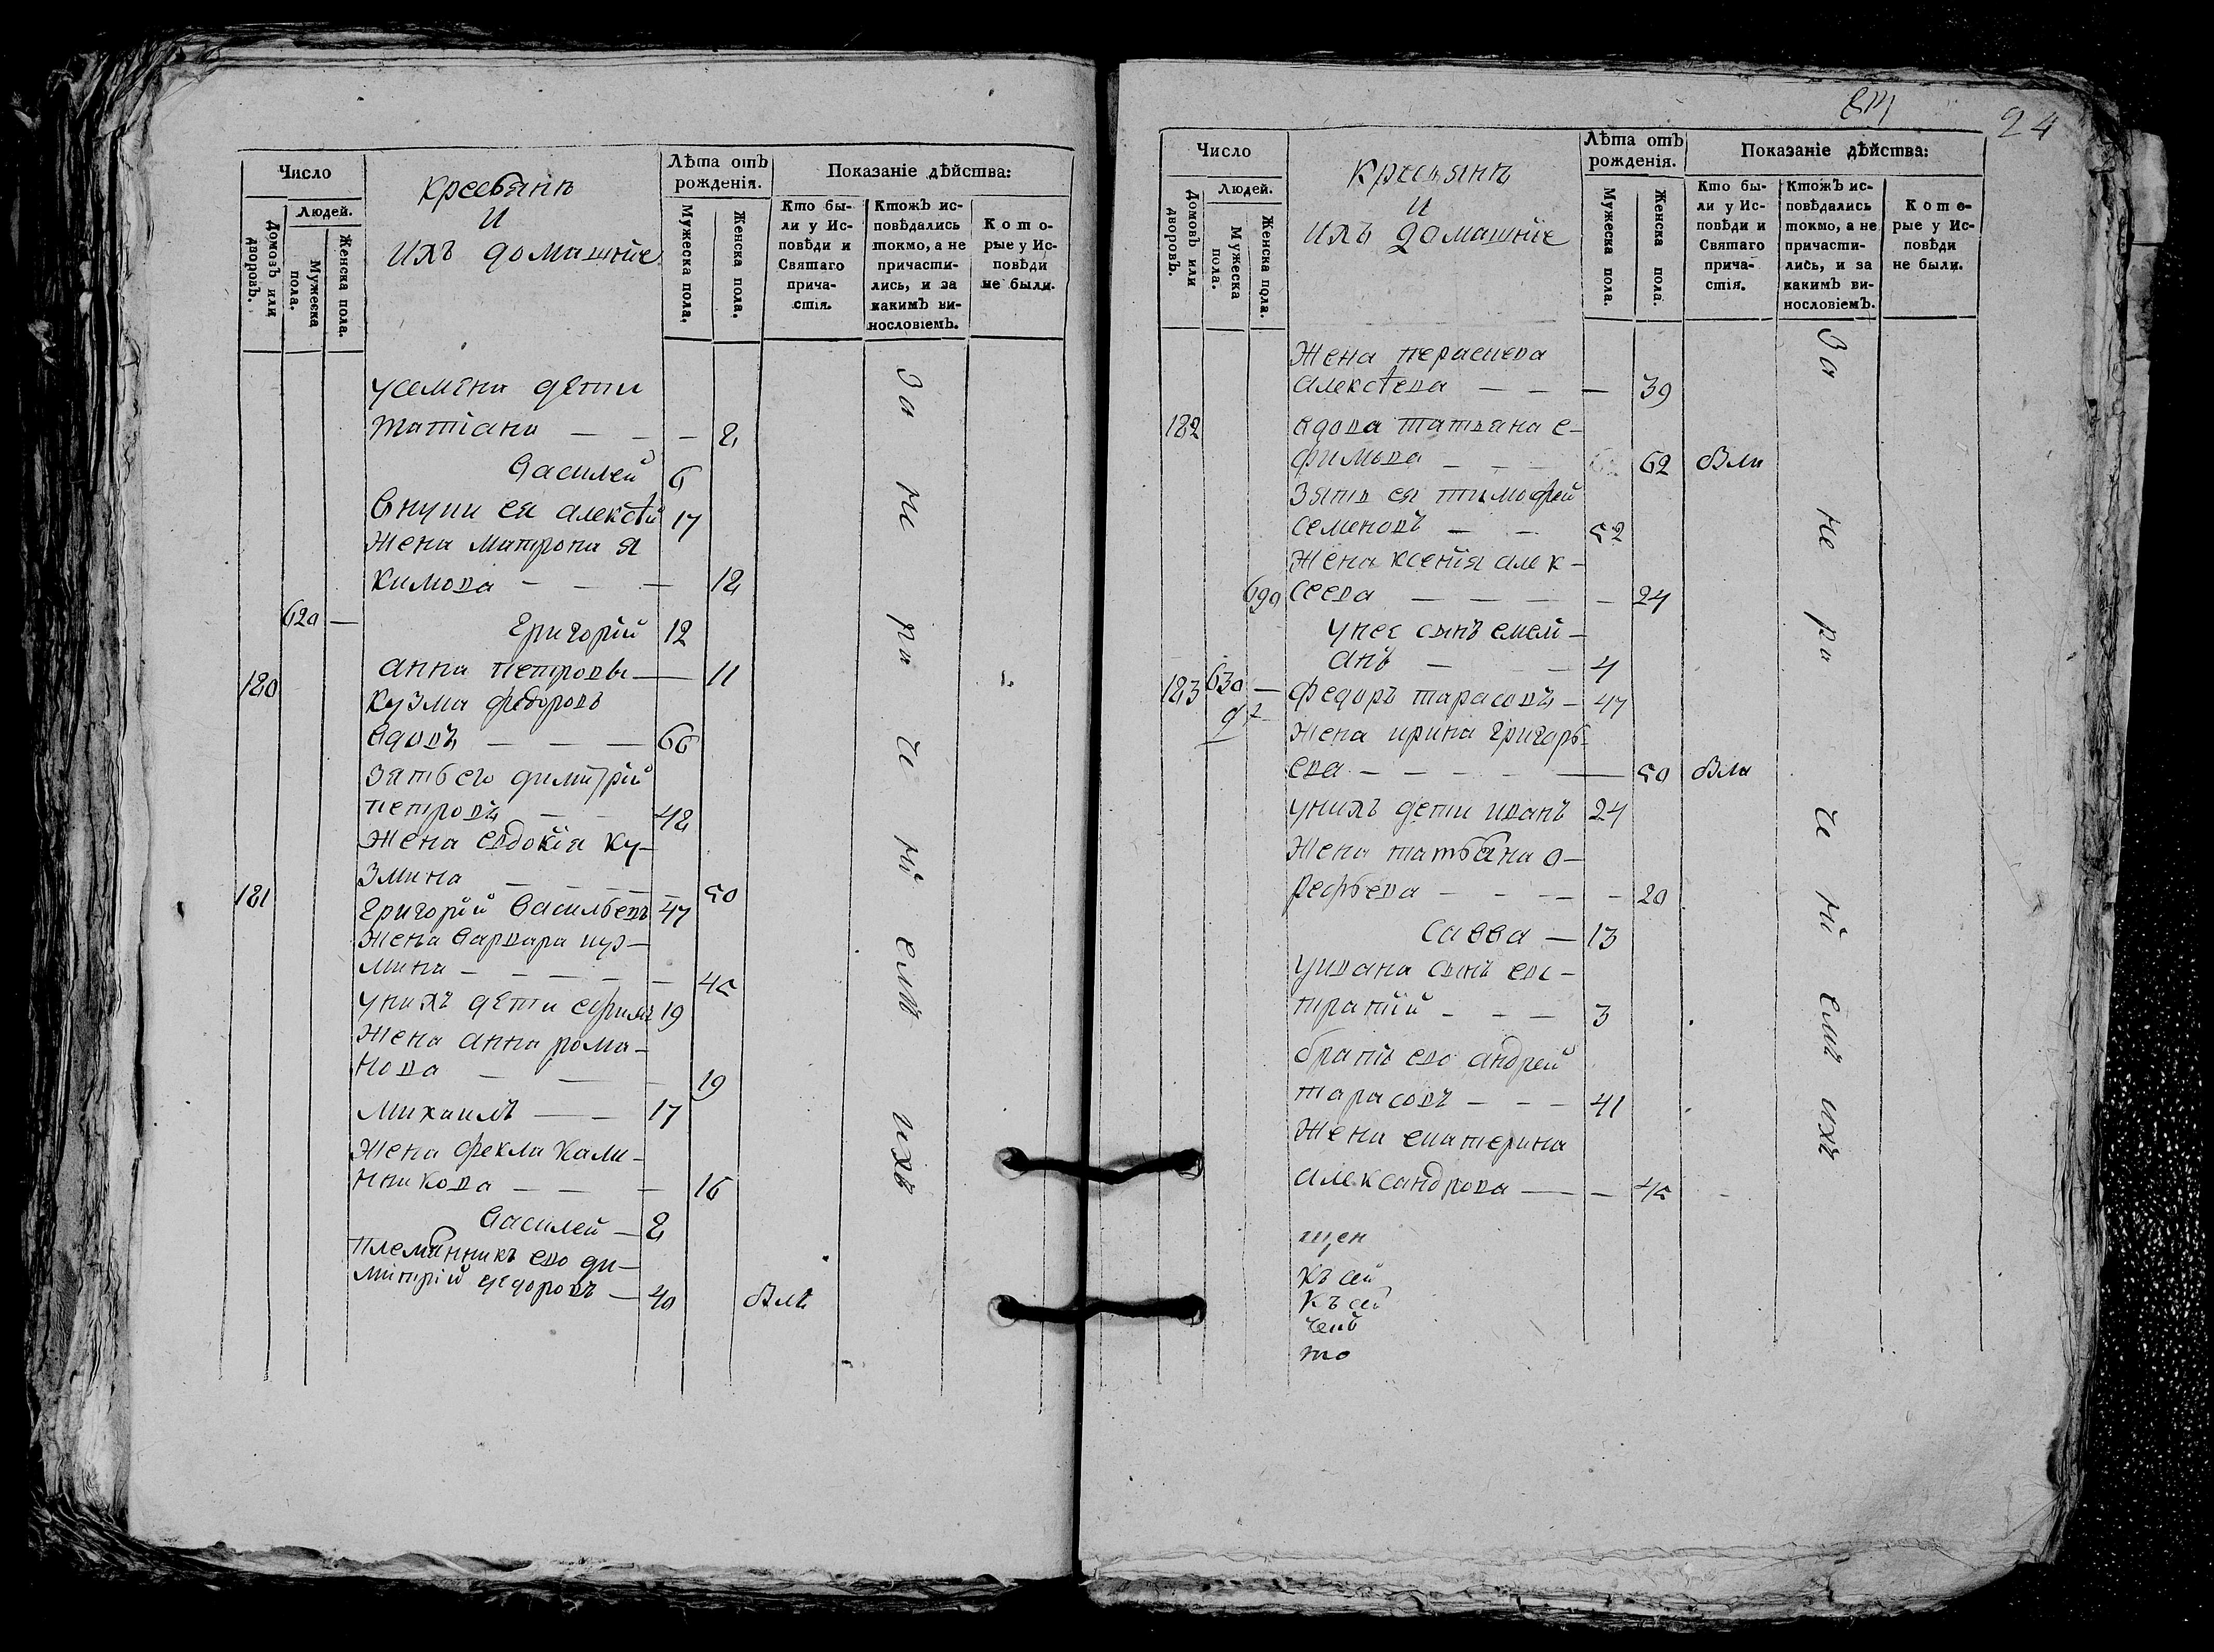 Число
Людей.
Домовъ или дворовъ.
Мужеска пола.
Женска пола.
крестьянъ
И
ихъ домашніе
Лѣта отъ рожденія.
Мужеска пола.
Женска пола.
Показаніе дѣйства:
Кто были у Исповѣди и Святаго причастія.
Ктожъ исповѣдались токмо, а не причастились, и за какимъ винословіемъ.
Которые у Исповѣди не были.
усемена дети
татіана — — — 8
Василей 6
внуки ея алексѣй 17
жена матрона я
кимова — — — 18
620 — Григорій 12
анна петровы — 11
180 Кузма федоровъ
вдовъ — — — 66
Зять его димитрій
петровъ — — 48
жена евдокія ку—
змина — — — — 50
181 Григорій Васильевъ 47
жена варвара куз—
мина — — — — — 45
унихъ дети ефимъ 19
жена анна рома—
нова — — — 19
михаилъ — — 17
жена фекла кали—
никова — — — 16
Василей — 8
племянникъ ево ди—
митрій федоровъ — 40 были
За не ра че ні емъ ихъ
24
Число
Людей.
Домовъ или дворовъ.
Мужеска пола.
Женска пола.
крестьянъ
И
ихъ домашніе
Лѣта отъ рожденія.
Мужеска пола.
Женска пола.
Показаніе дѣйства:
Кто были у Исповѣди и Святаго причастія.
Ктожъ исповѣдались токмо, а не причастились, и за какимъ винословіемъ.
Которые у Исповѣди не были.
жена
алексѣева — — — 39
182 вдова татьяна е—
фимова — — — 62 были
Зять ея тимофей
семеновъ — — 52
жена ксенія алек—
699 сеева — — — — — 24
унее сынъ емели—
анъ — — 4
183 630 — федоръ тарасовъ — 47
жена ирина григорь—
ева — — — — — 50 были
унихъ дети иванъ 24
жена татьяна о—
рефьева — — — — — 20
савва — 13
уивана сынъ евс—
тратій — — — 3
братъ ево андрей
тарасовъ — — — 41
жена екатерина
александрова — — — 45
щен
къ сей
къ сей
то
За не ра че ні емъ ихъ